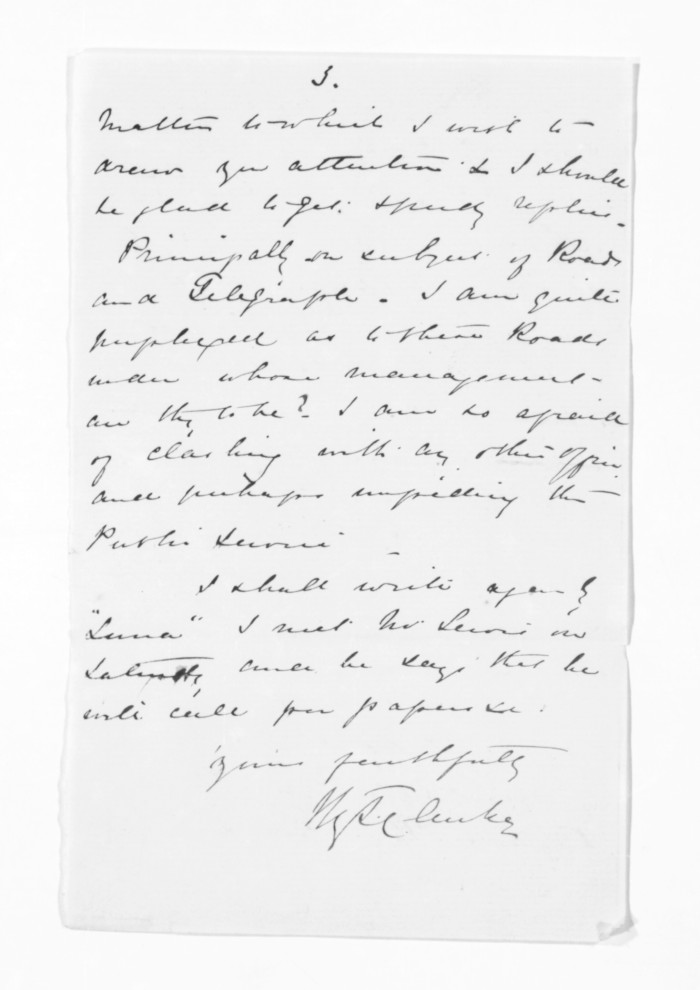 3.
matters to which I wish to
draw your attention & I should
be glad to get speedy replies.
Principally on subject of Roads
and Telegraph. I am quite
perplexed as to these Roads
under whose management
are they to be? I am so afraid
of clashing with any other officer
and perhaps impeding the
Public Service
I shall write again by
"Luna" I met Mr Lewis on
Saturday and he says that he
will call for papers &c.
Yours faithfully
Clarke